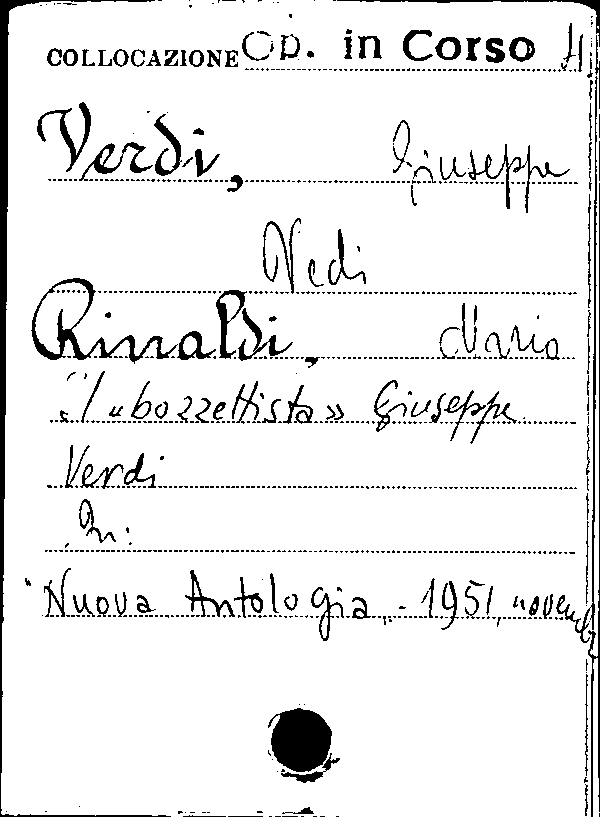 COLLOCAZIONE Op. in Corso 4
Verdi, Giuseppe
Vedi
Rinaldi, Mario
"Il «bozzettista» Giuseppe
Verdi
In:
"Nuova Antologia" - 1951, novembr